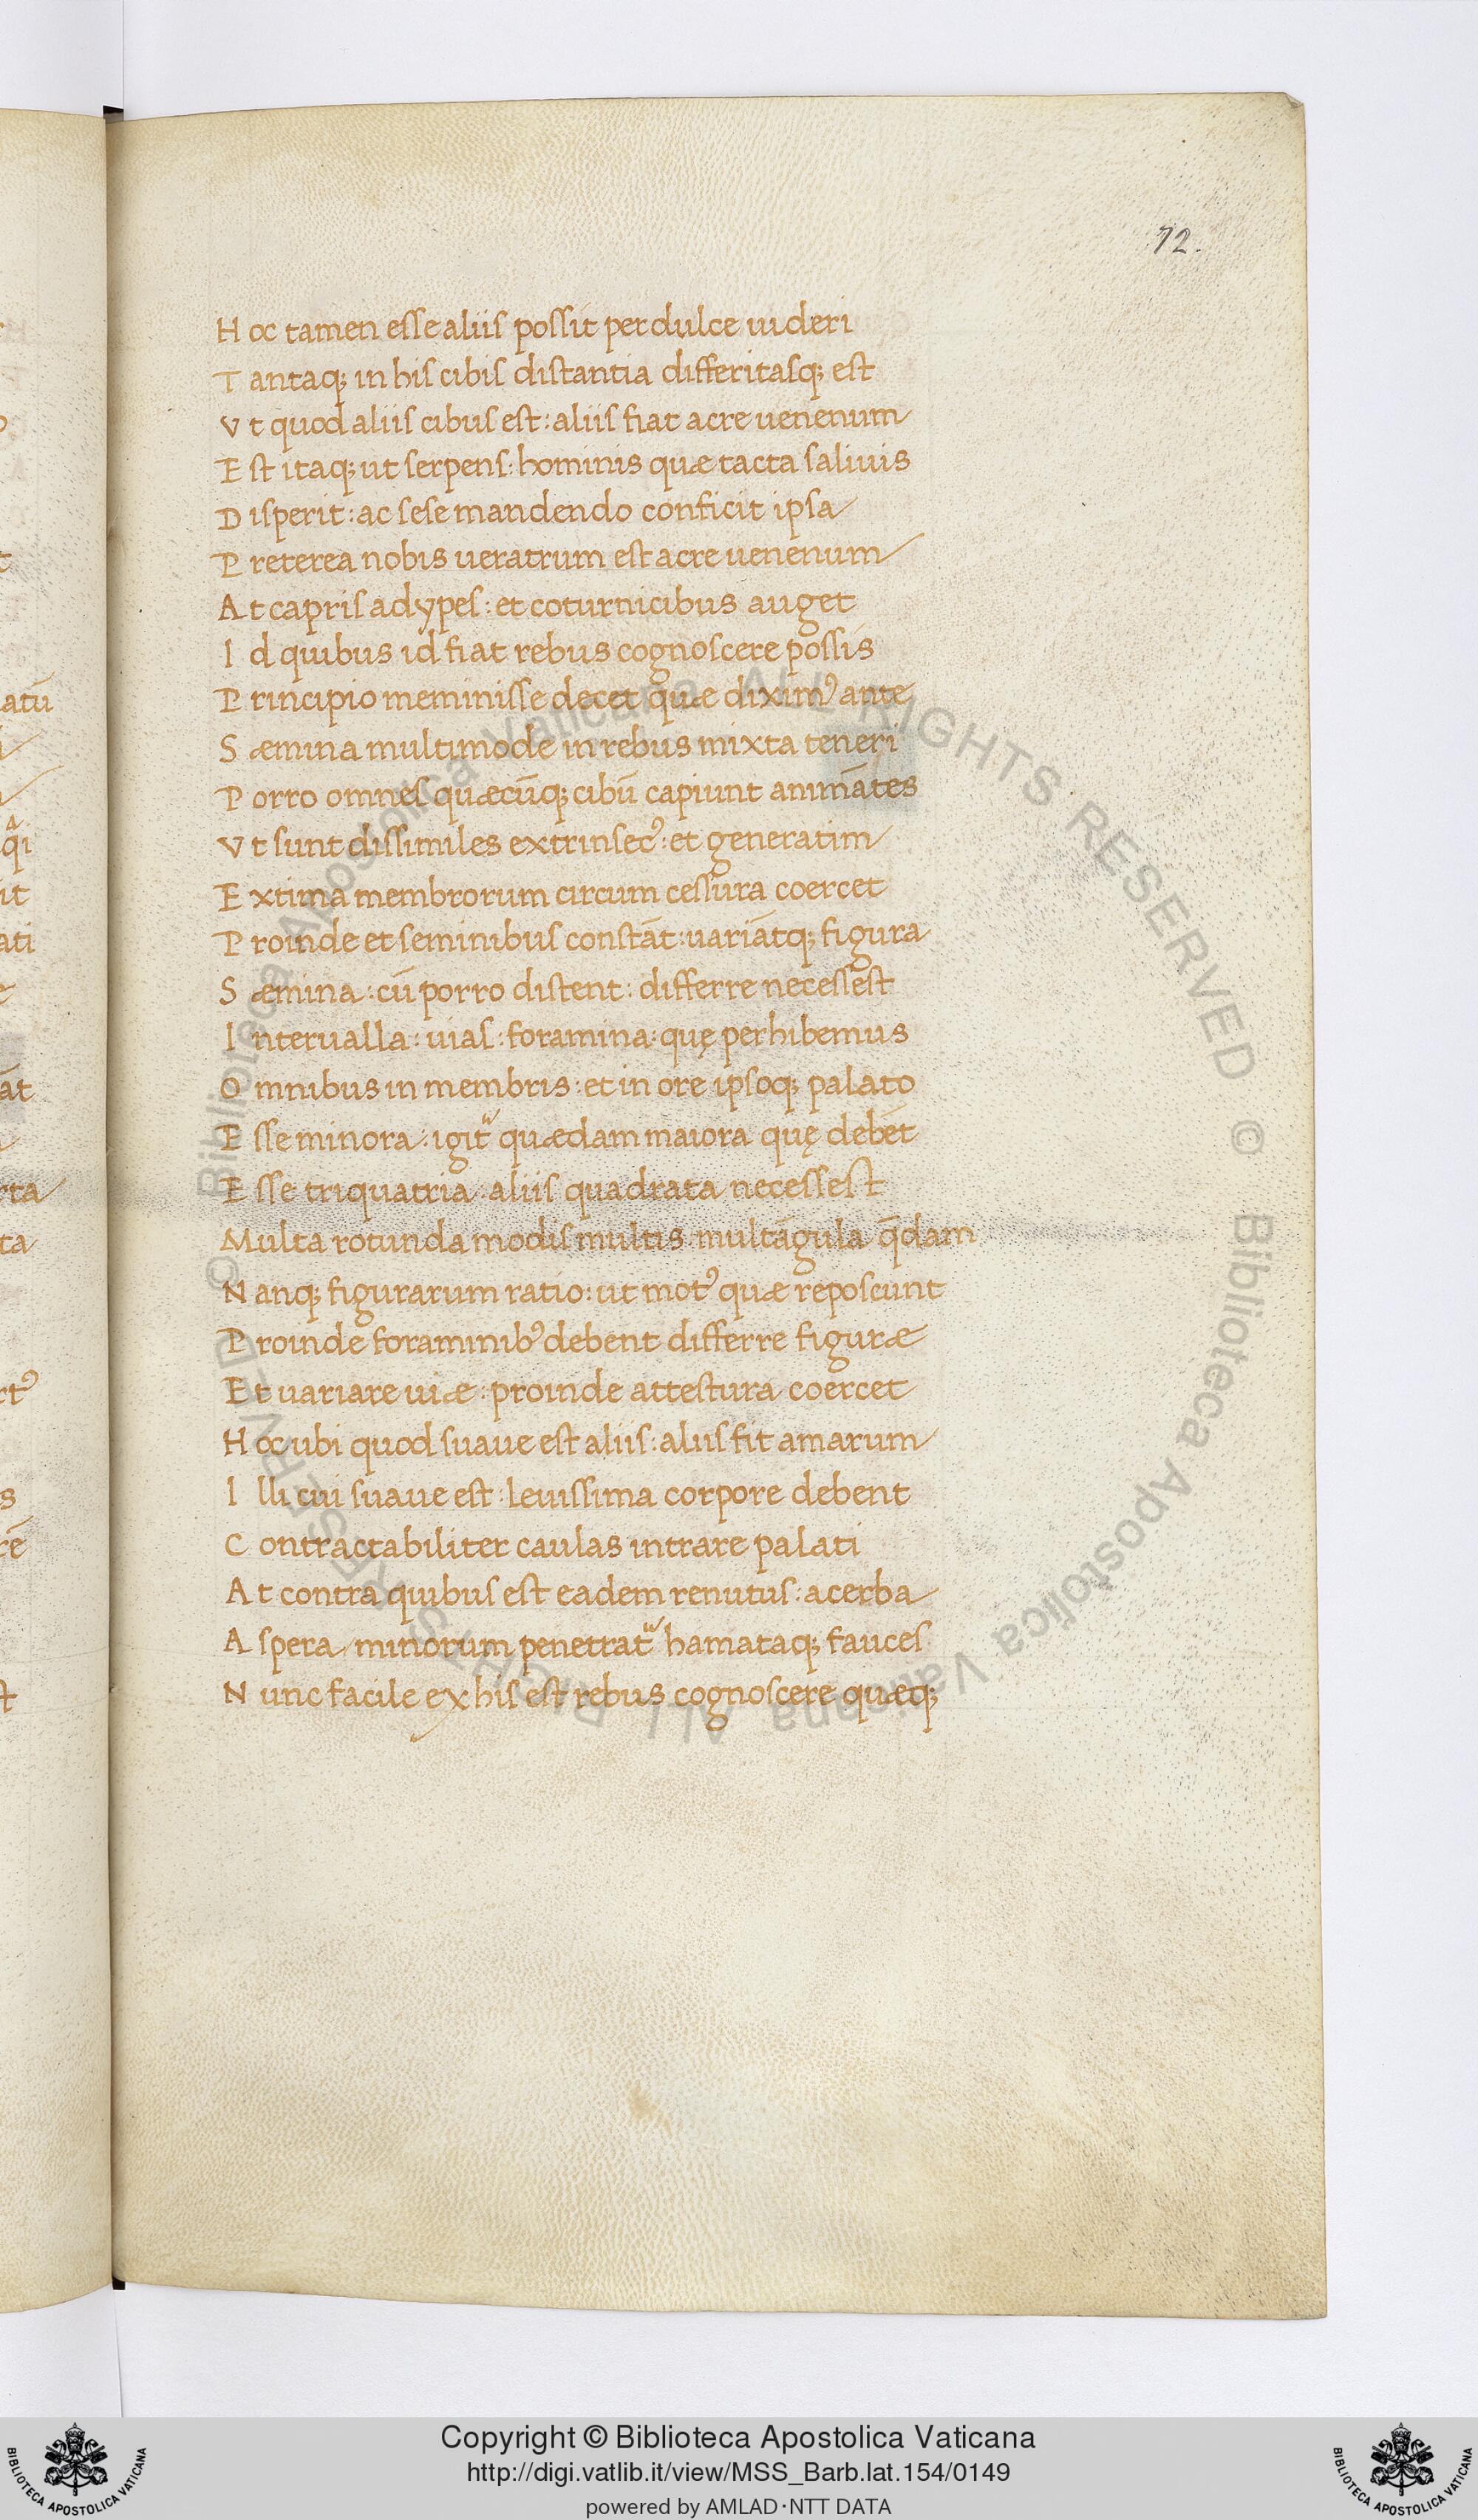 72.
Hoc tamen esse aliis possit perdulce uideri
Tantaq; in his cibis distantia differitasq; est
Vt quod aliis cibus est: aliis fiat acre uenenum
Est itaq; ut serpens: hominis quæ tacta saliuis
Disperit: ac sese mandendo conficit ipsa
Preterea nobis ueratrum est acre uenenum
At capris adypes: et coturnicibus auget
Id quibus id fiat rebus cognoscere possis
Principio meminisse decet quæ diximꝰ ante
Sæmina multimode in rebus mixta teneri
Porro omnes quæcūq; cibū capiunt animātes
Vt sunt dissimiles extrinsecꝰ: et generatim
Extima membrorum circum cessura coercet
Proinde et seminibus constāt: uariātq; figura
Sæmina: cū porro distent: differre necessest
Interualla: uias: foramina: quę perhibemus
Omnibus in membris: et in ore ipsoq; palato
Esse minora: igit᷑ quædam maiora quę debēt
Esse triquatria: aliis quadrata necessest
Multa rotunda modis multis multāgula q̄dam
Nanq; figurarum ratio: ut motꝰ quæ reposcunt
Proinde foraminibꝰ debent differre figuræ
Et uariare uiæ: proinde attestura coercet
Hoc ubi quod suaue est aliis: aliis fit amarum
Illi cui suaue est: leuissima corpore debent
Contractabiliter caulas intrare palati
At contra quibus est eadem renutus: acerba
Aspera minorum penetrat᷑ hamataq; fauces
Nunc facile ex his est rebus cognoscere quæq;
© Biblioteca Apostolica Vaticana ALL RIGHTS RESERVED © Biblioteca Apostolica Vaticana ALL RIGHTS RESERVED
Copyright © Biblioteca Apostolica Vaticana
http://digi.vatlib.it/view/MSS_Barb.lat.154/0149
powered by AMLAD·NTT DATA
BIBLIOTECA APOSTOLICA VATICANA
BIBLIOTECA APOSTOLICA VATICANA